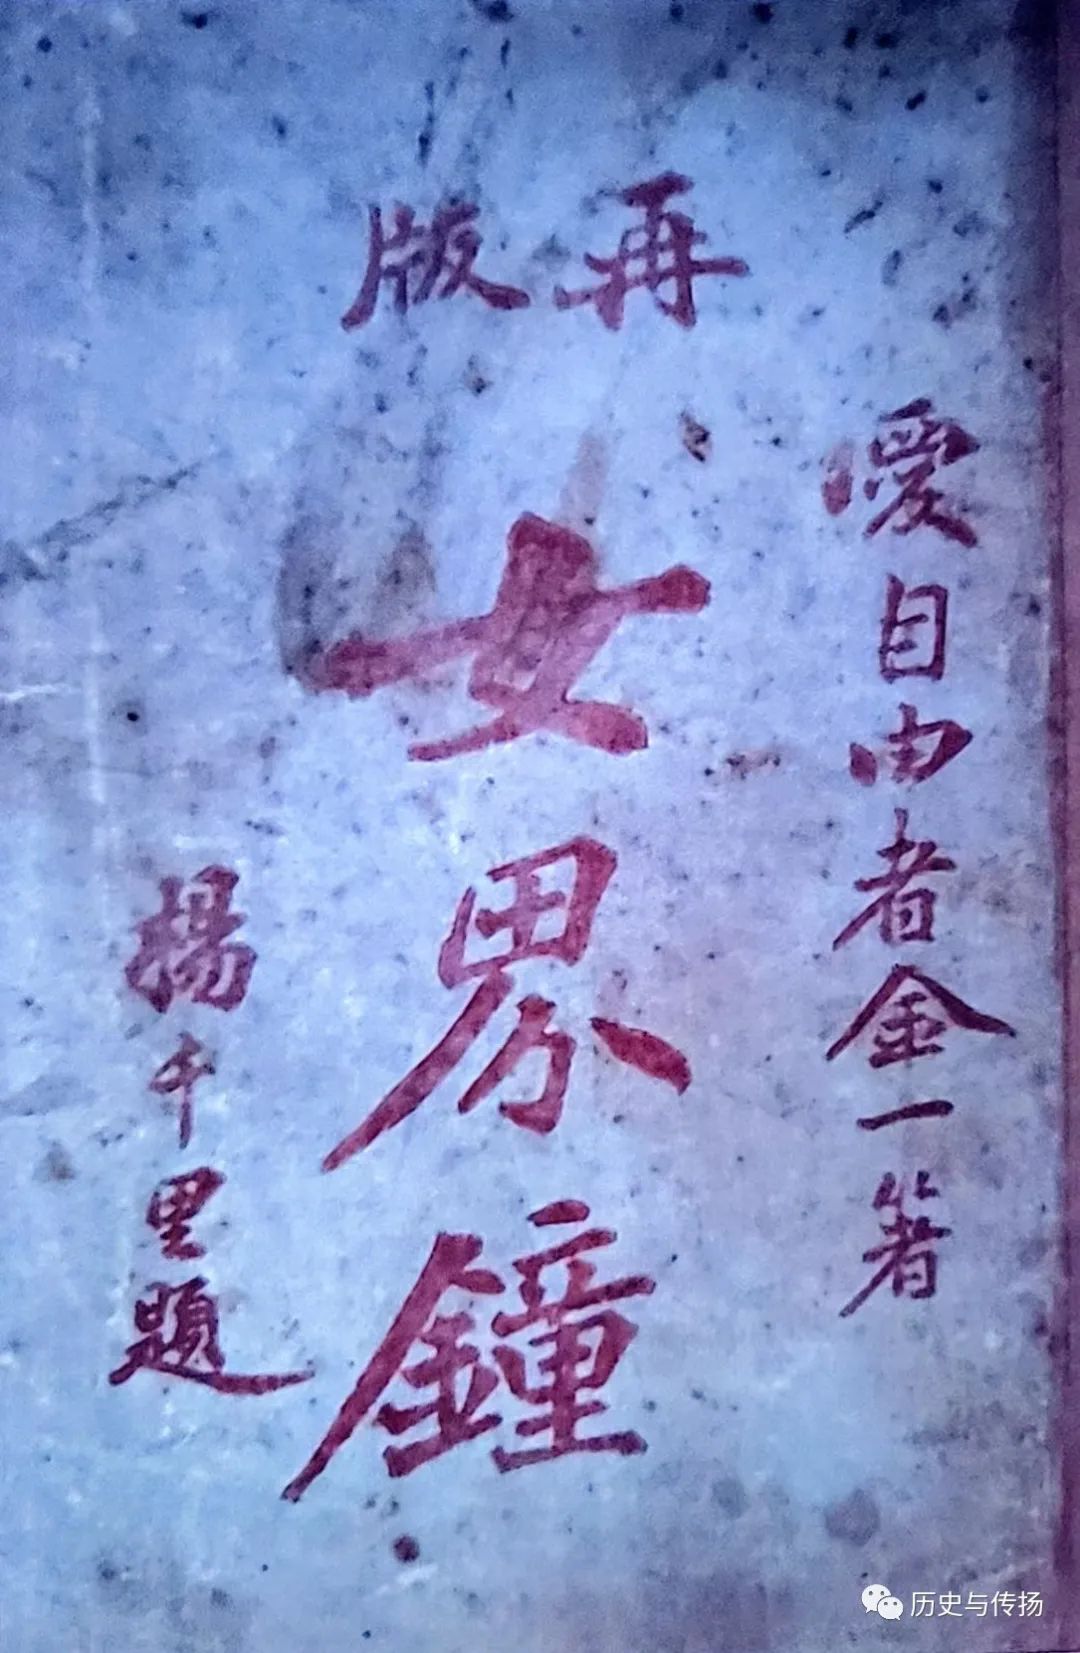 再版
愛自由者金一著
女界鐘
楊千里題
历史与传扬